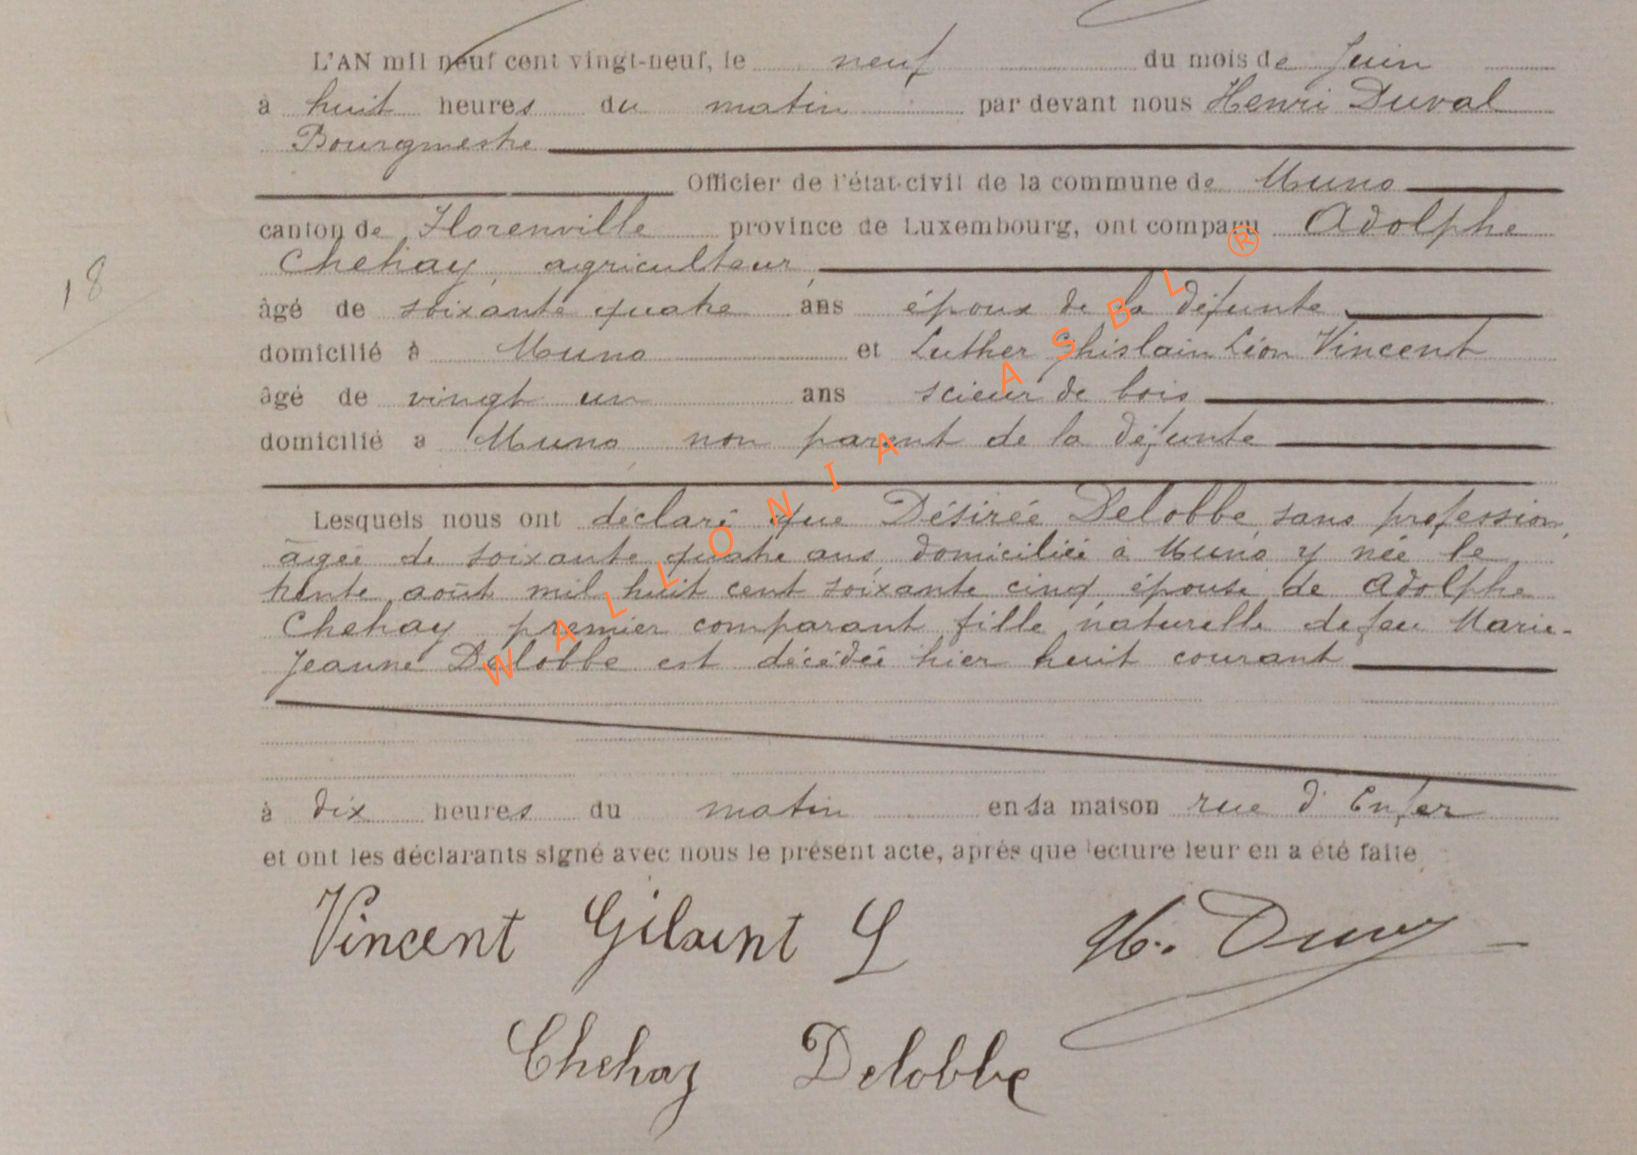 L'AN mil neuf cent vingt-neuf, le neuf du mois de Juin
à huit heures du matin par devant nous Henri Duval
Bourgmestre
Officier de l'état-civil de la commune de Muno
canton de Florenville province de Luxembourg, ont comparu Adolphe
Chehay, agriculteur,
18
âgé de soixante quatre ans époux de la défunte
domicilié à Muno et Luther Ghislain Léon Vincent
âgé de vingt un ans scieur de bois
domicilié à Muno, non parent de la défunte
Lesquels nous ont déclaré que Désirée Delobbe, sans profession,
âgée de soixante quatre ans, domiciliée à Muno y née le
trente août mil huit cent soixante cinq, épouse de Adolphe
Chehay, premier comparant fille naturelle de feu Marie-
Jeanne Delobbe est décédée hier huit courant
à dix heures du matin en sa maison rue d'Enfer
et ont les déclarants signé avec nous le présent acte, après que lecture leur en a été faite
Vincent Gilaint L H. Duval
Chehay Delobbe
WALLONIA ASBL ®